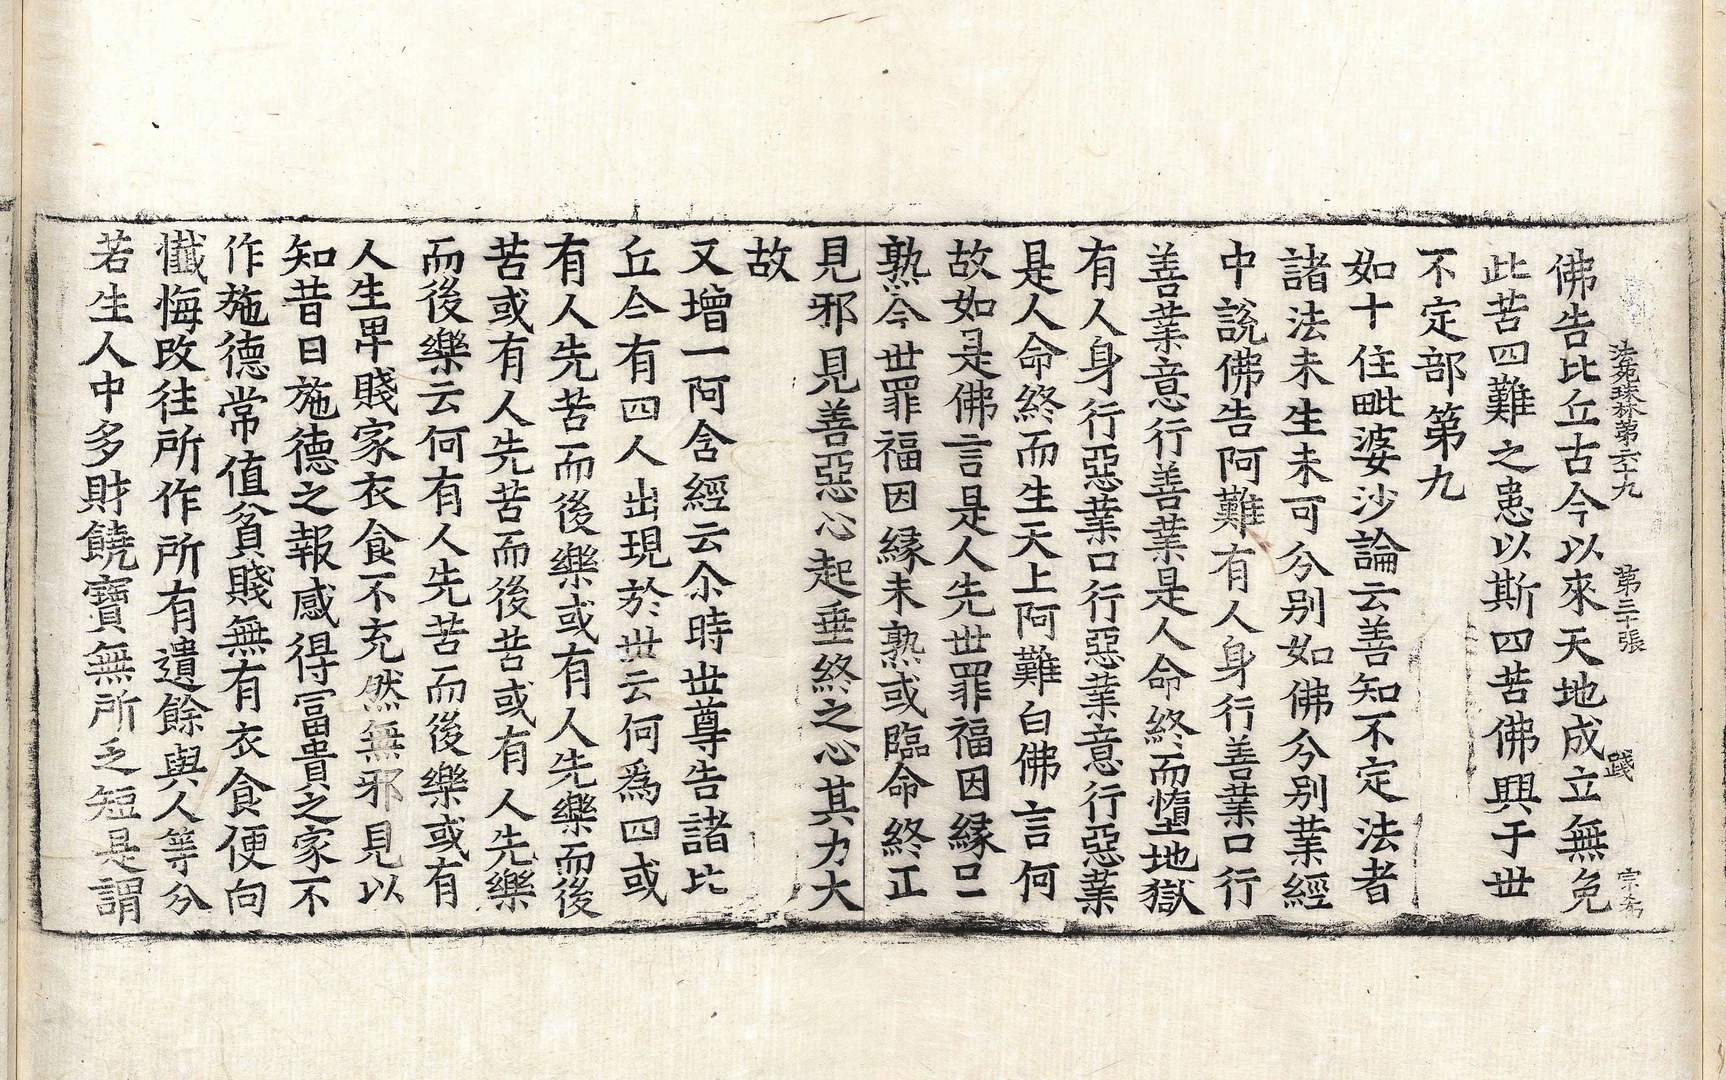 法苑珠林第六十九 第三十張 踐 宗布
佛告比丘古今以來天地成立無免
此苦四難之患以斯四苦佛興于世
不定部第九
如十住毗婆沙論云善知不定法者
諸法未生未可分别如佛分别業經
中說佛告阿難有人身行善業口行
善業意行善業是人命終而墮地獄
有人身行惡業口行惡業意行惡業
是人命終而生天上阿難白佛言何
故如是佛言是人先世罪福因緣已
熟今世罪福因緣未熟或臨命終正
見邪見善惡心起垂終之心其力大
故
又增一阿含經云尒時世尊告諸比
丘今有四人出現於世云何爲四或
有人先苦而後樂或有人先樂而後
苦或有人先苦而後苦或有人先樂
而後樂云何有人先苦而後樂或有
人生卑賤家衣食不充然無邪見以
知昔日施德之報感得富貴之家不
作施德常值貧賤無有衣食便向
懺悔改往所作所有遺餘與人等分
若生人中多財饒寶無所乏短是謂